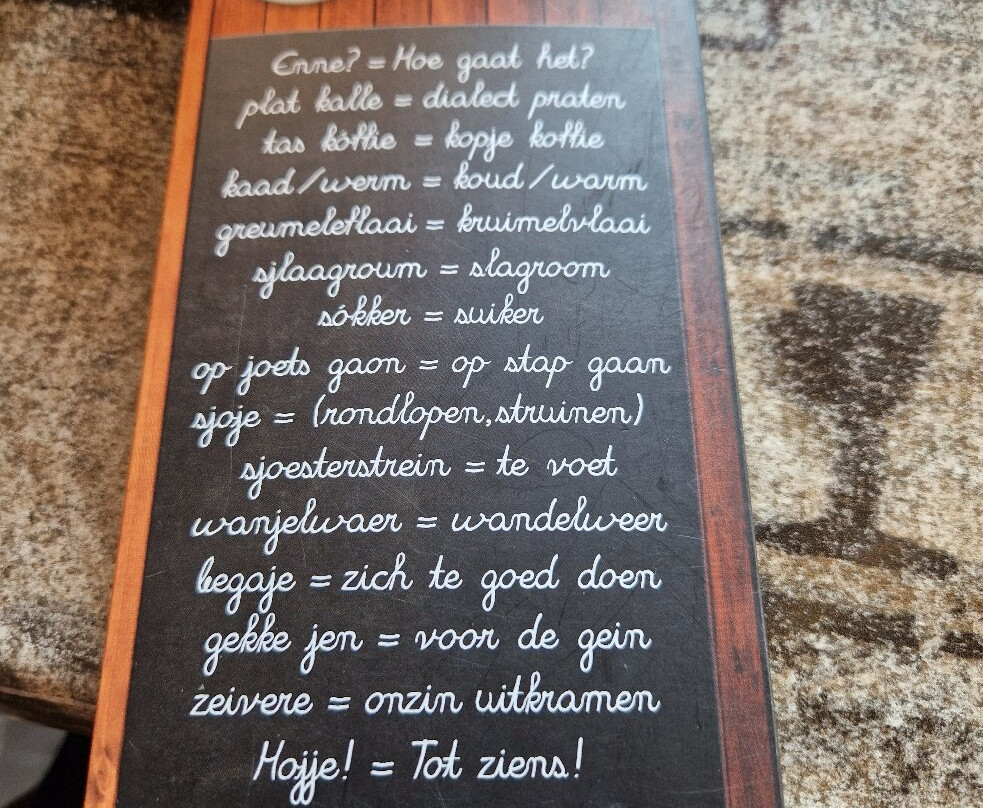 Enne? = Hoe gaat het?
plat kalle = dialect praten
tas kóffie = kopje koffie
kaad/werm = koud/warm
greumeleflaai = kruimelvlaai
sjlaagroum = slagroom
sókker = suiker
op joets gaon = op stap gaan
sjoje = (rondlopen, struinen)
sjoesterstrein = te voet
wanjelwaer = wandelweer
begaje = zich te goed doen
gekke jen = voor de gein
zeivere = onzin uitkramen
Hojje! = Tot ziens!